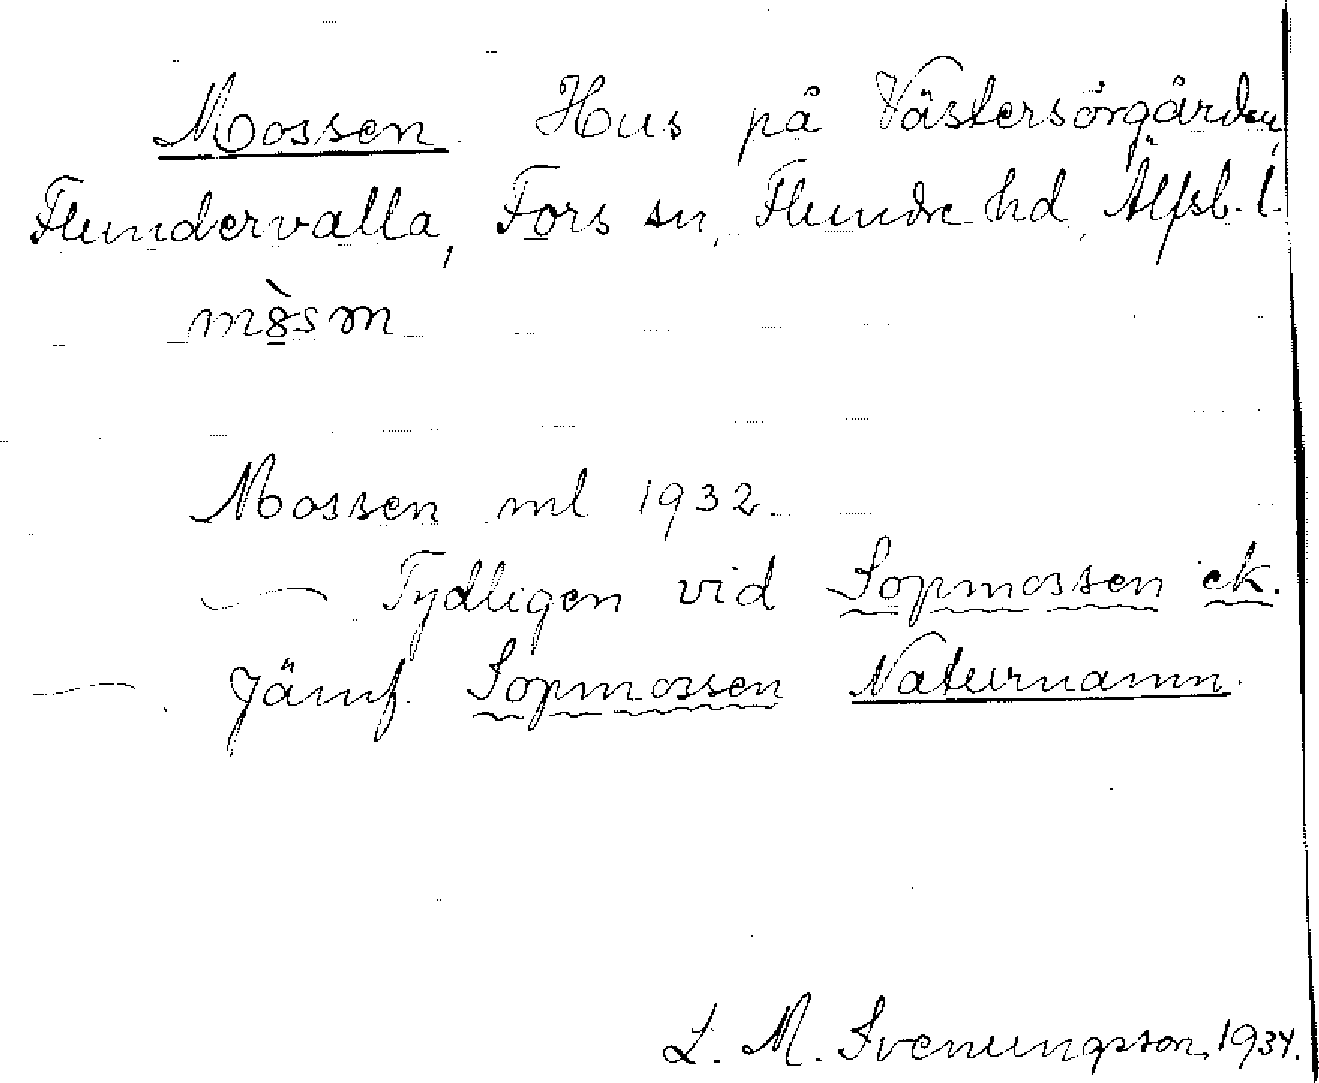 Mossen Hus på Västersörgården,
Flundervalla, Fors sn, Flundre hd, Älfsb. l.
Mossen ml 1932.
— Tydligen vid Sopmossen ek.
— Jämf. Sopmossen Naturnamn.
L. M. Svenungsson, 1934.